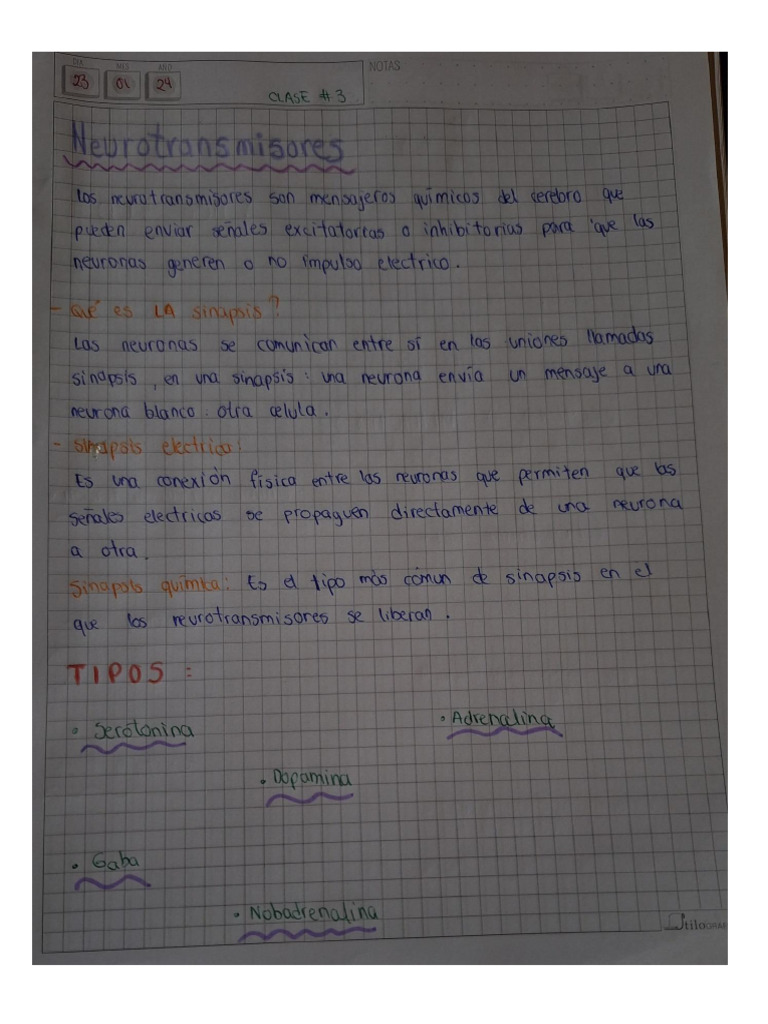 DIA MES AÑO NOTAS
23 01 24
CLASE # 3
Neurotransmisores
Los neurotransmisores son mensajeros químicos del cerebro que
pueden enviar señales excitatorias o inhibitorias para que las
neuronas generen o no impulso electrico.
- Qué es LA sinapsis?
Las neuronas se comunican entre sí en las uniones llamadas
sinapsis, en una sinapsis: una neurona envía un mensaje a una
neurona blanco: otra celula.
- Sinapsis electrica:
Es una conexión física entre las neuronas que permiten que las
señales electricas se propaguen directamente de una neurona
a otra.
Sinapsis química: Es el tipo más cómun de sinapsis en el
que los neurotransmisores se liberan.
TIPOS:
• Serotonina
• Adrenalina
• Dopamina
• Gaba
• Nobadrenalina